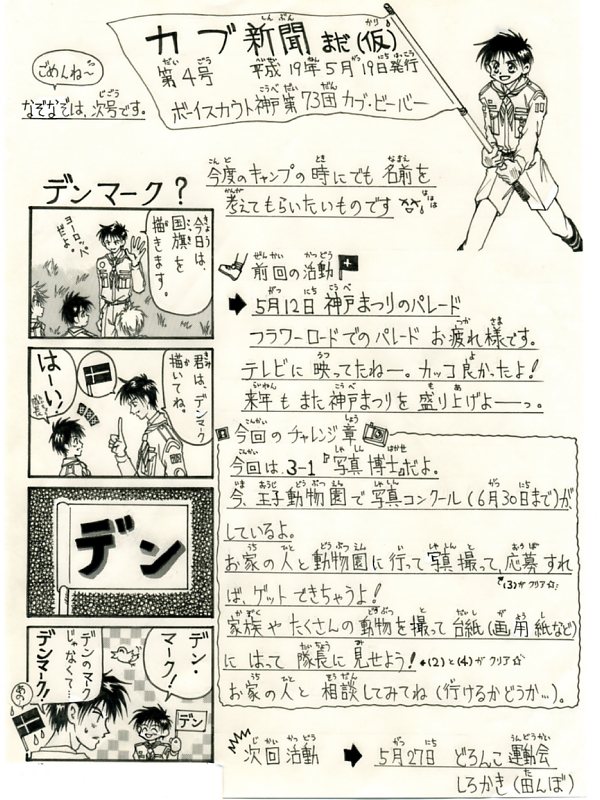 カブ新聞 まだ(仮)
第4号 平成19年5月19日発行
ボーイスカウト神戸第73団カブ・ビーバー
ごめんね~
なぞなぞは、次号です。
今度のキャンプの時にでも名前を
考えてもらいたいものです
デンマーク?
今日は、
国旗を
描きます。
ヨーロッパ
だよ。
君は、デンマーク
描いてね。
はーい。
デン
デン・
マーク!
デン
デンのマーク
じゃなくて…
デンマーク!
あの
前回の活動
➡ 5月12日 神戸まつりのパレード
フラワーロードでのパレード お疲れ様です。
テレビに映ってたねー。カッコ良かったよ!
来年もまた神戸まつりを盛り上げよーっ。
今回のチャレンジ章
今回は、3-1『写真博士』だよ。
今、王子動物園で写真コンクール(6月30日まで)が
しているよ。
お家の人と動物園に行って写真撮って、応募すれ
ば、ゲットできちゃうよ!
(3)がクリア☆
家族やたくさんの動物を撮って台紙(画用紙など)
にはって隊長に見せよう!
(2)と(4)がクリア☆
お家の人と相談してみてね(行けるかどうか…)。
次回活動 ➡ 5月27日 どろんこ運動会
しろかき(田んぼ)